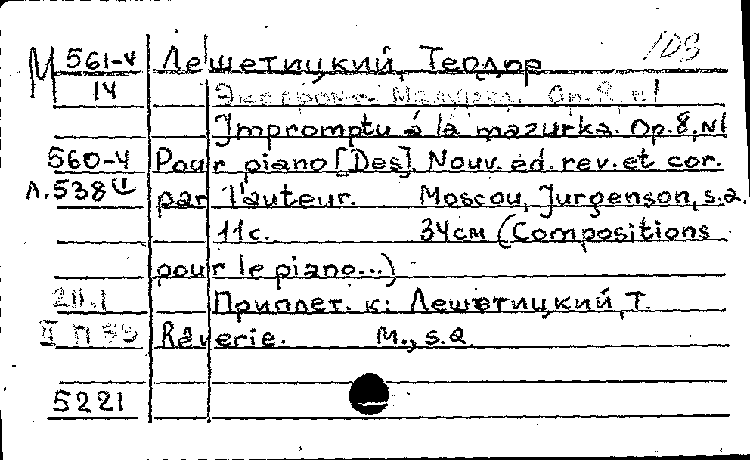 108
М 561-4 Лешетицкий, Теодор
14 Экспромт Мазурка. Op.8, n1
Impromptu á la mazurka. Op.8, N1
560-4 Pour piano [Des]. Nouv. ed. rev. et cor.
Л.538 par l'auteur. Moscou, Jurgenson, s.a.
11c. 34см (Compositions
pour le piano...)
211.1 Приплет. к: Лешетицкий, Т.
II П Rêverie. М., s.a.
5221